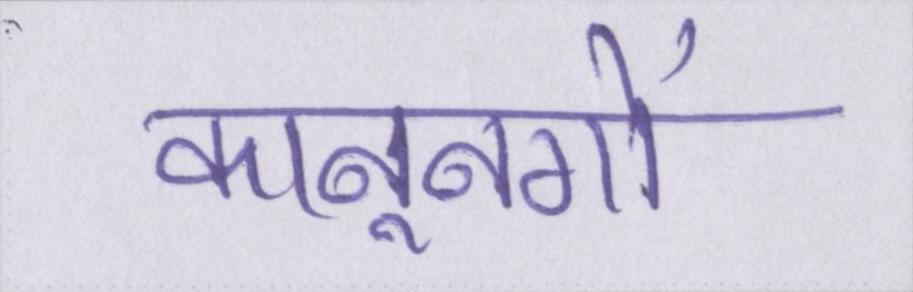 कानूनगों